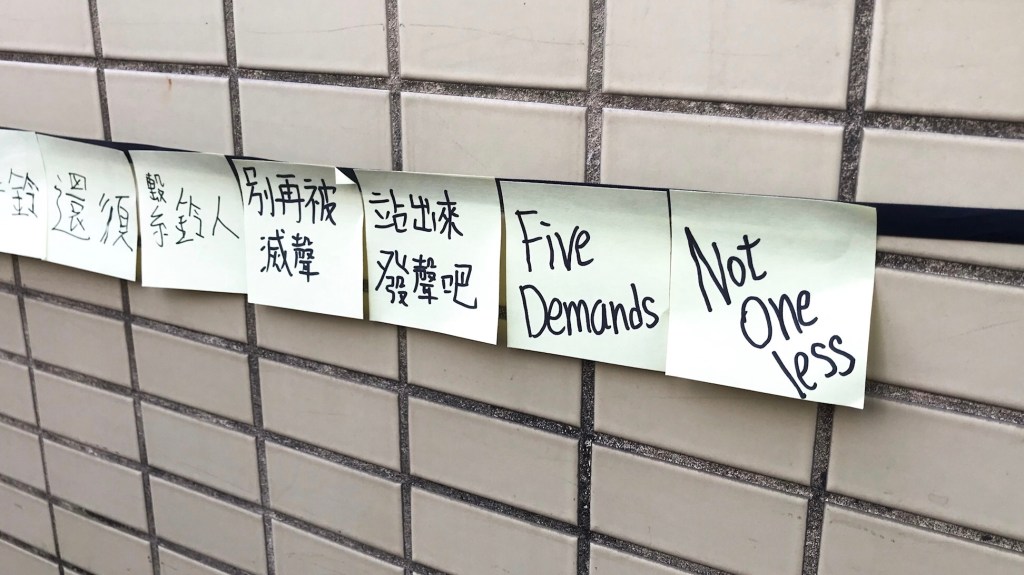 鈴
還須
繫鈴人
別再被
滅聲
站出來
發聲吧
Five
Demands
Not
One
less